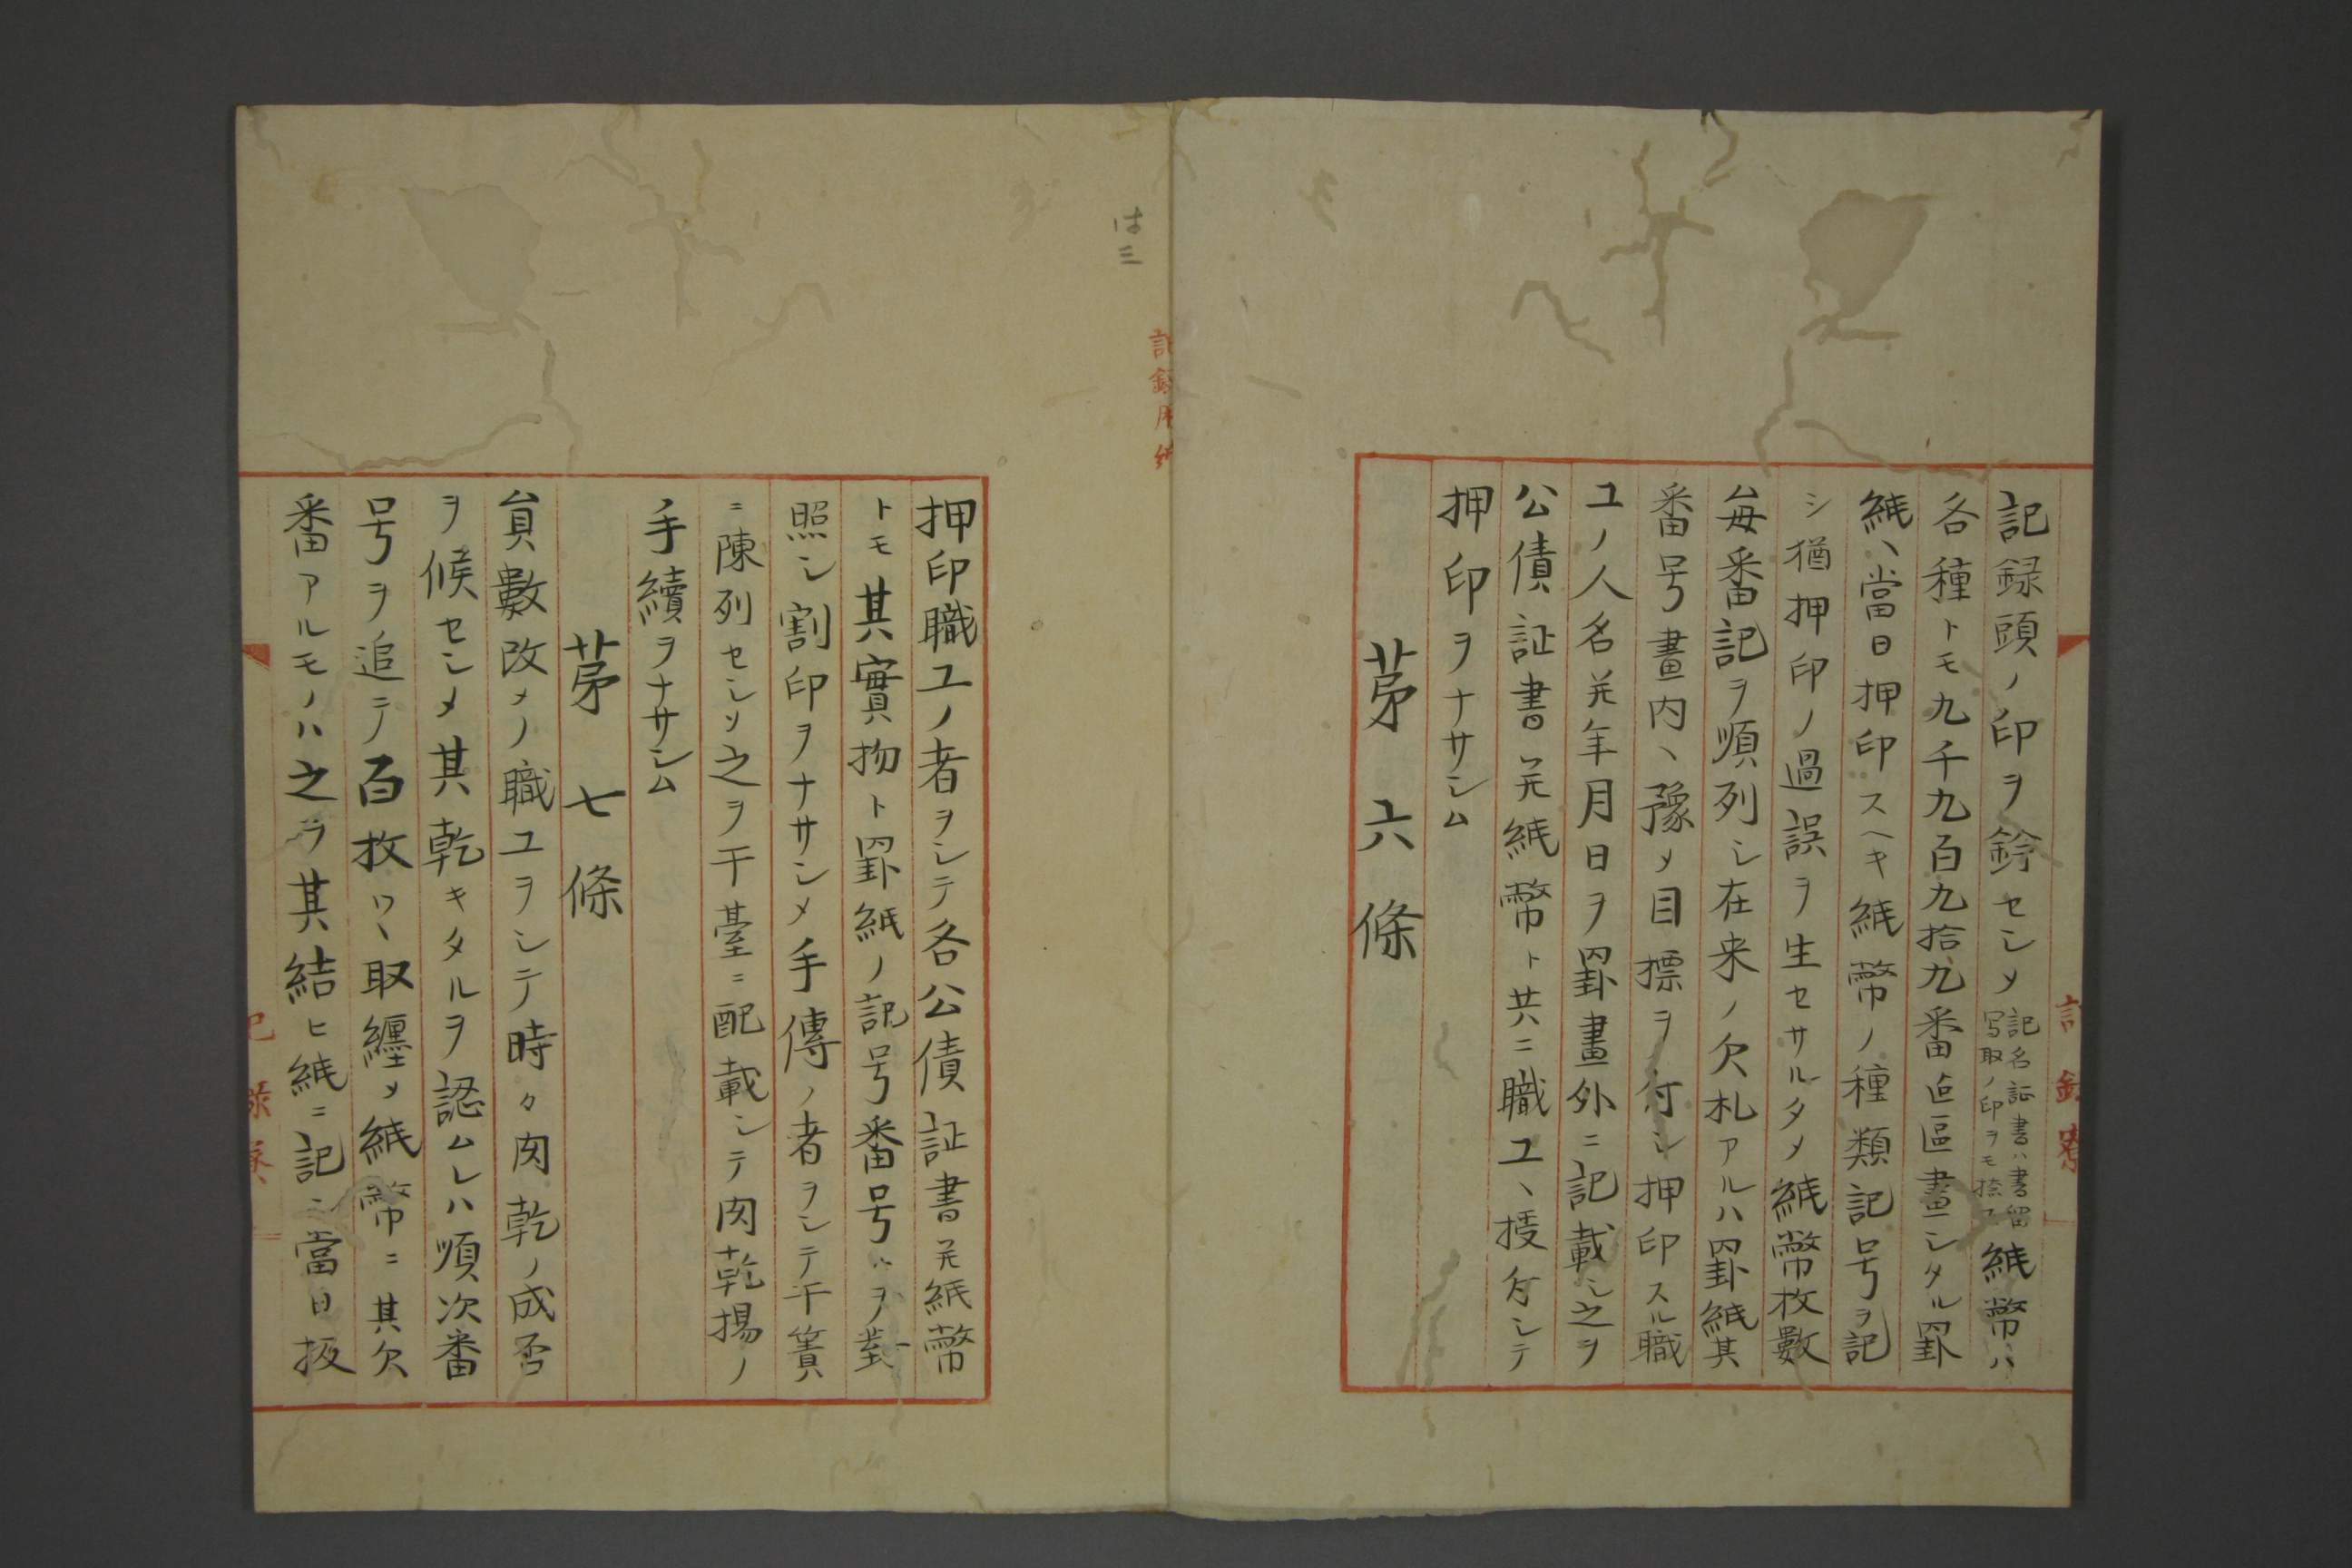 記録頭ノ印ヲ鈐セシメ記名証書ハ書留
写取ノ印ヲモ捺ス紙幣ハ
各種トモ九千九百九拾九番迠區畫シタル罫
紙、當日押印スヘキ紙幣ノ種類記号ヲ記
シ猶押印ノ過誤ヲ生セサルタメ紙幣枚數
毎番記ヲ順列シ在来ノ欠札アルハ罫紙其
番号畫内、豫メ目標ヲ付シ押印スル職
工ノ人名并年月日ヲ罫畫外ニ記載シ之ヲ
公債証書并紙幣ト共ニ職工、授付シテ
押印ヲナサシム
苐六條
押印職工ノ者ヲシテ各公債証書并紙幣
トモ其實物ト罫紙ノ記号番号トヲ對
照シ割印ヲナサシメ手傳ノ者ヲシテ干簀
ニ陳列セシメ之ヲ干臺ニ配載シテ肉乾揚ノ
手續ヲナサシム
苐七條
員數改メノ職工ヲシテ時々肉乾ノ成否
ヲ候セシメ其乾キタルヲ認ムレハ順次番
号ヲ追テ百枚ツヽ取纏メ紙幣ニ其欠
番アルモノハ之ヲ其結ヒ紙ニ記シ當日扱
は三
記録用紙
記録寮
記録寮